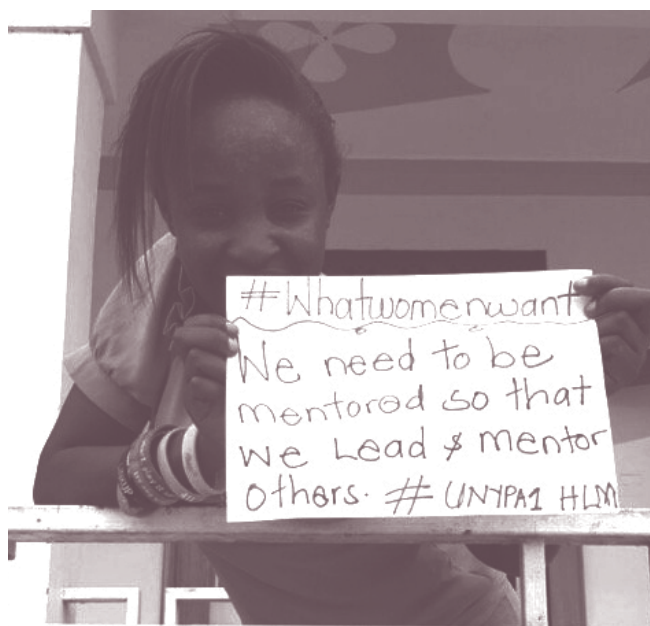 #Whatwomenwant
We need to be
mentored so that
we Lead & mentor
others. # UNYPA1 HLM